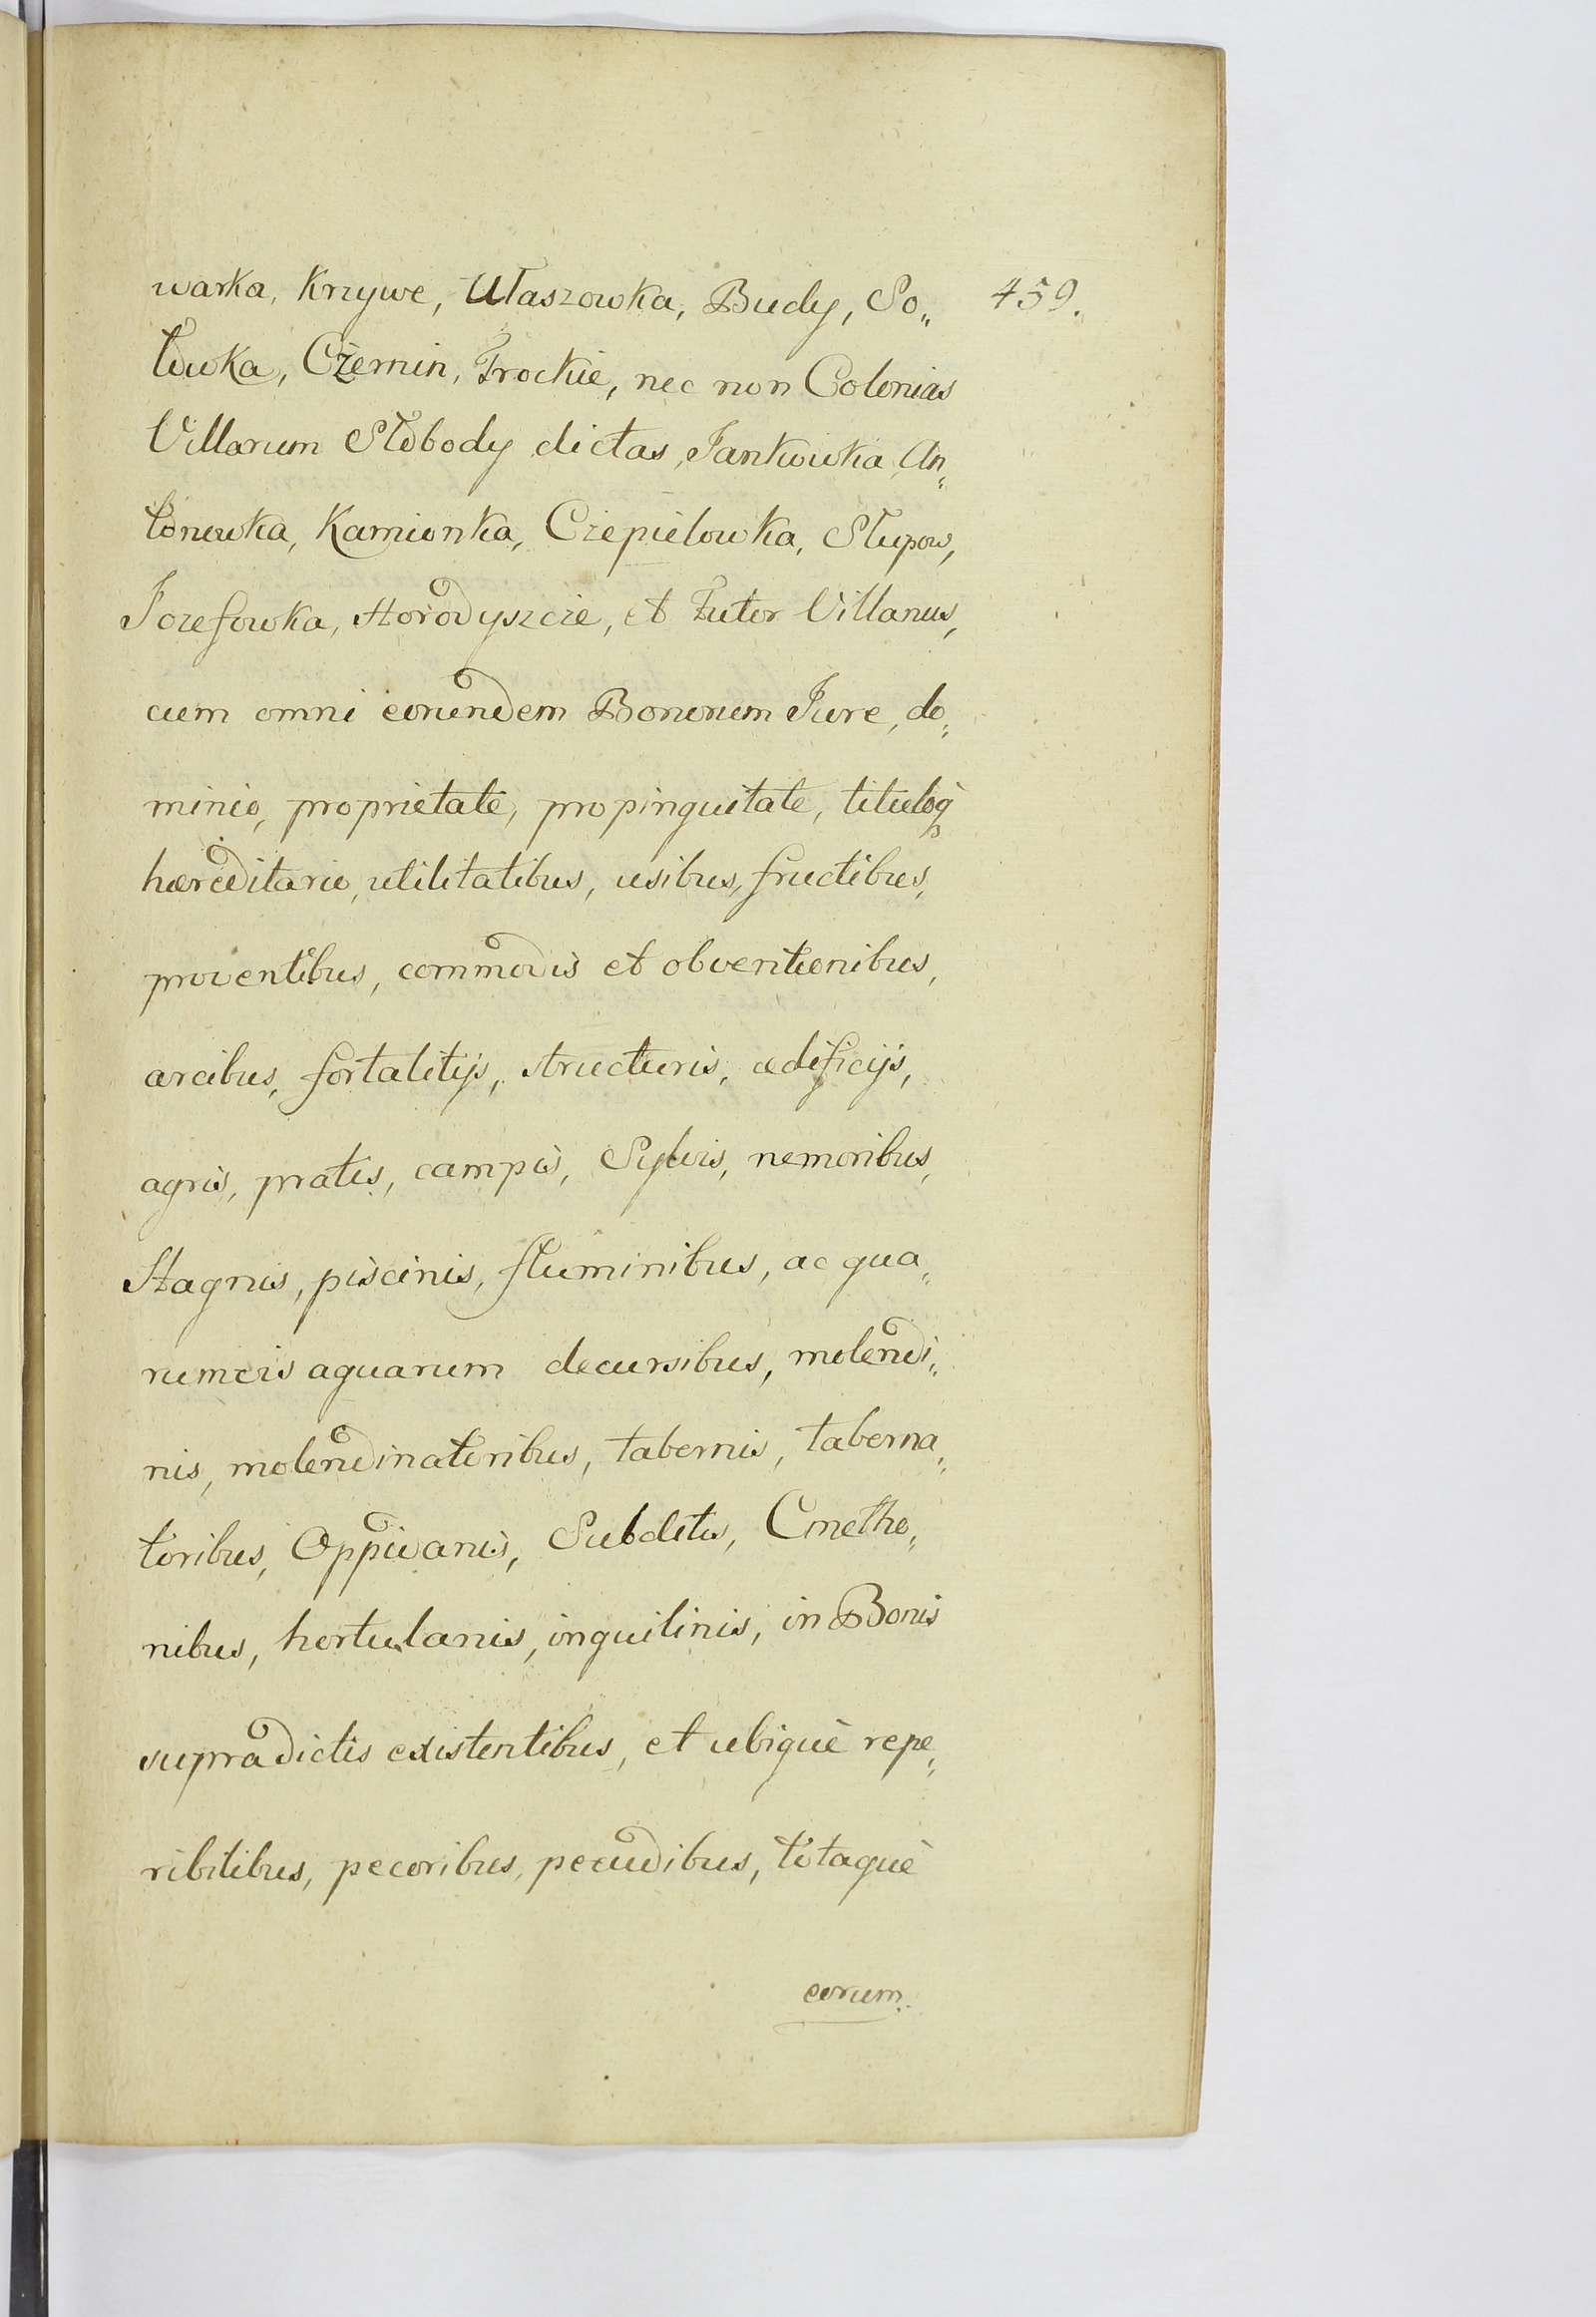 warka, Krzywe, Ułaszowka, Budy, So„ 459.
łowka, Czemin, Trockie, nec non Colonias
Villarum Słobody dictas, Jankowka, An„
tonowka, Kamionka, Czepielowka, Słupow,
Jozefowka, Horodyszcze, et Futor Villanus,
cum omni eorundem Bonorum Jure, do„
minio, proprietate, propinquitate, tituloq
hæreditario, utilitatibus, usibus, fructibus,
proventibus, commodis et obventionibus,
arcibus, fortalitijs, structuris, ædificijs,
agris, pratis, campis, Sylvis, nemoribus,
Stagnis, piscinis, fluminibus, ac qua„
rumvis aquarum decursibus, molendi„
nis, molendinatoribus, tabernis, taberna„
toribus, Oppidanis, Subditis, Cmetho„
nibus, hortulanis, inquilinis, in Bonis
supradictis existentibus, et ubiquè repe„
ribilibus, pecoribus, pecudibus, totaquè
eorum.